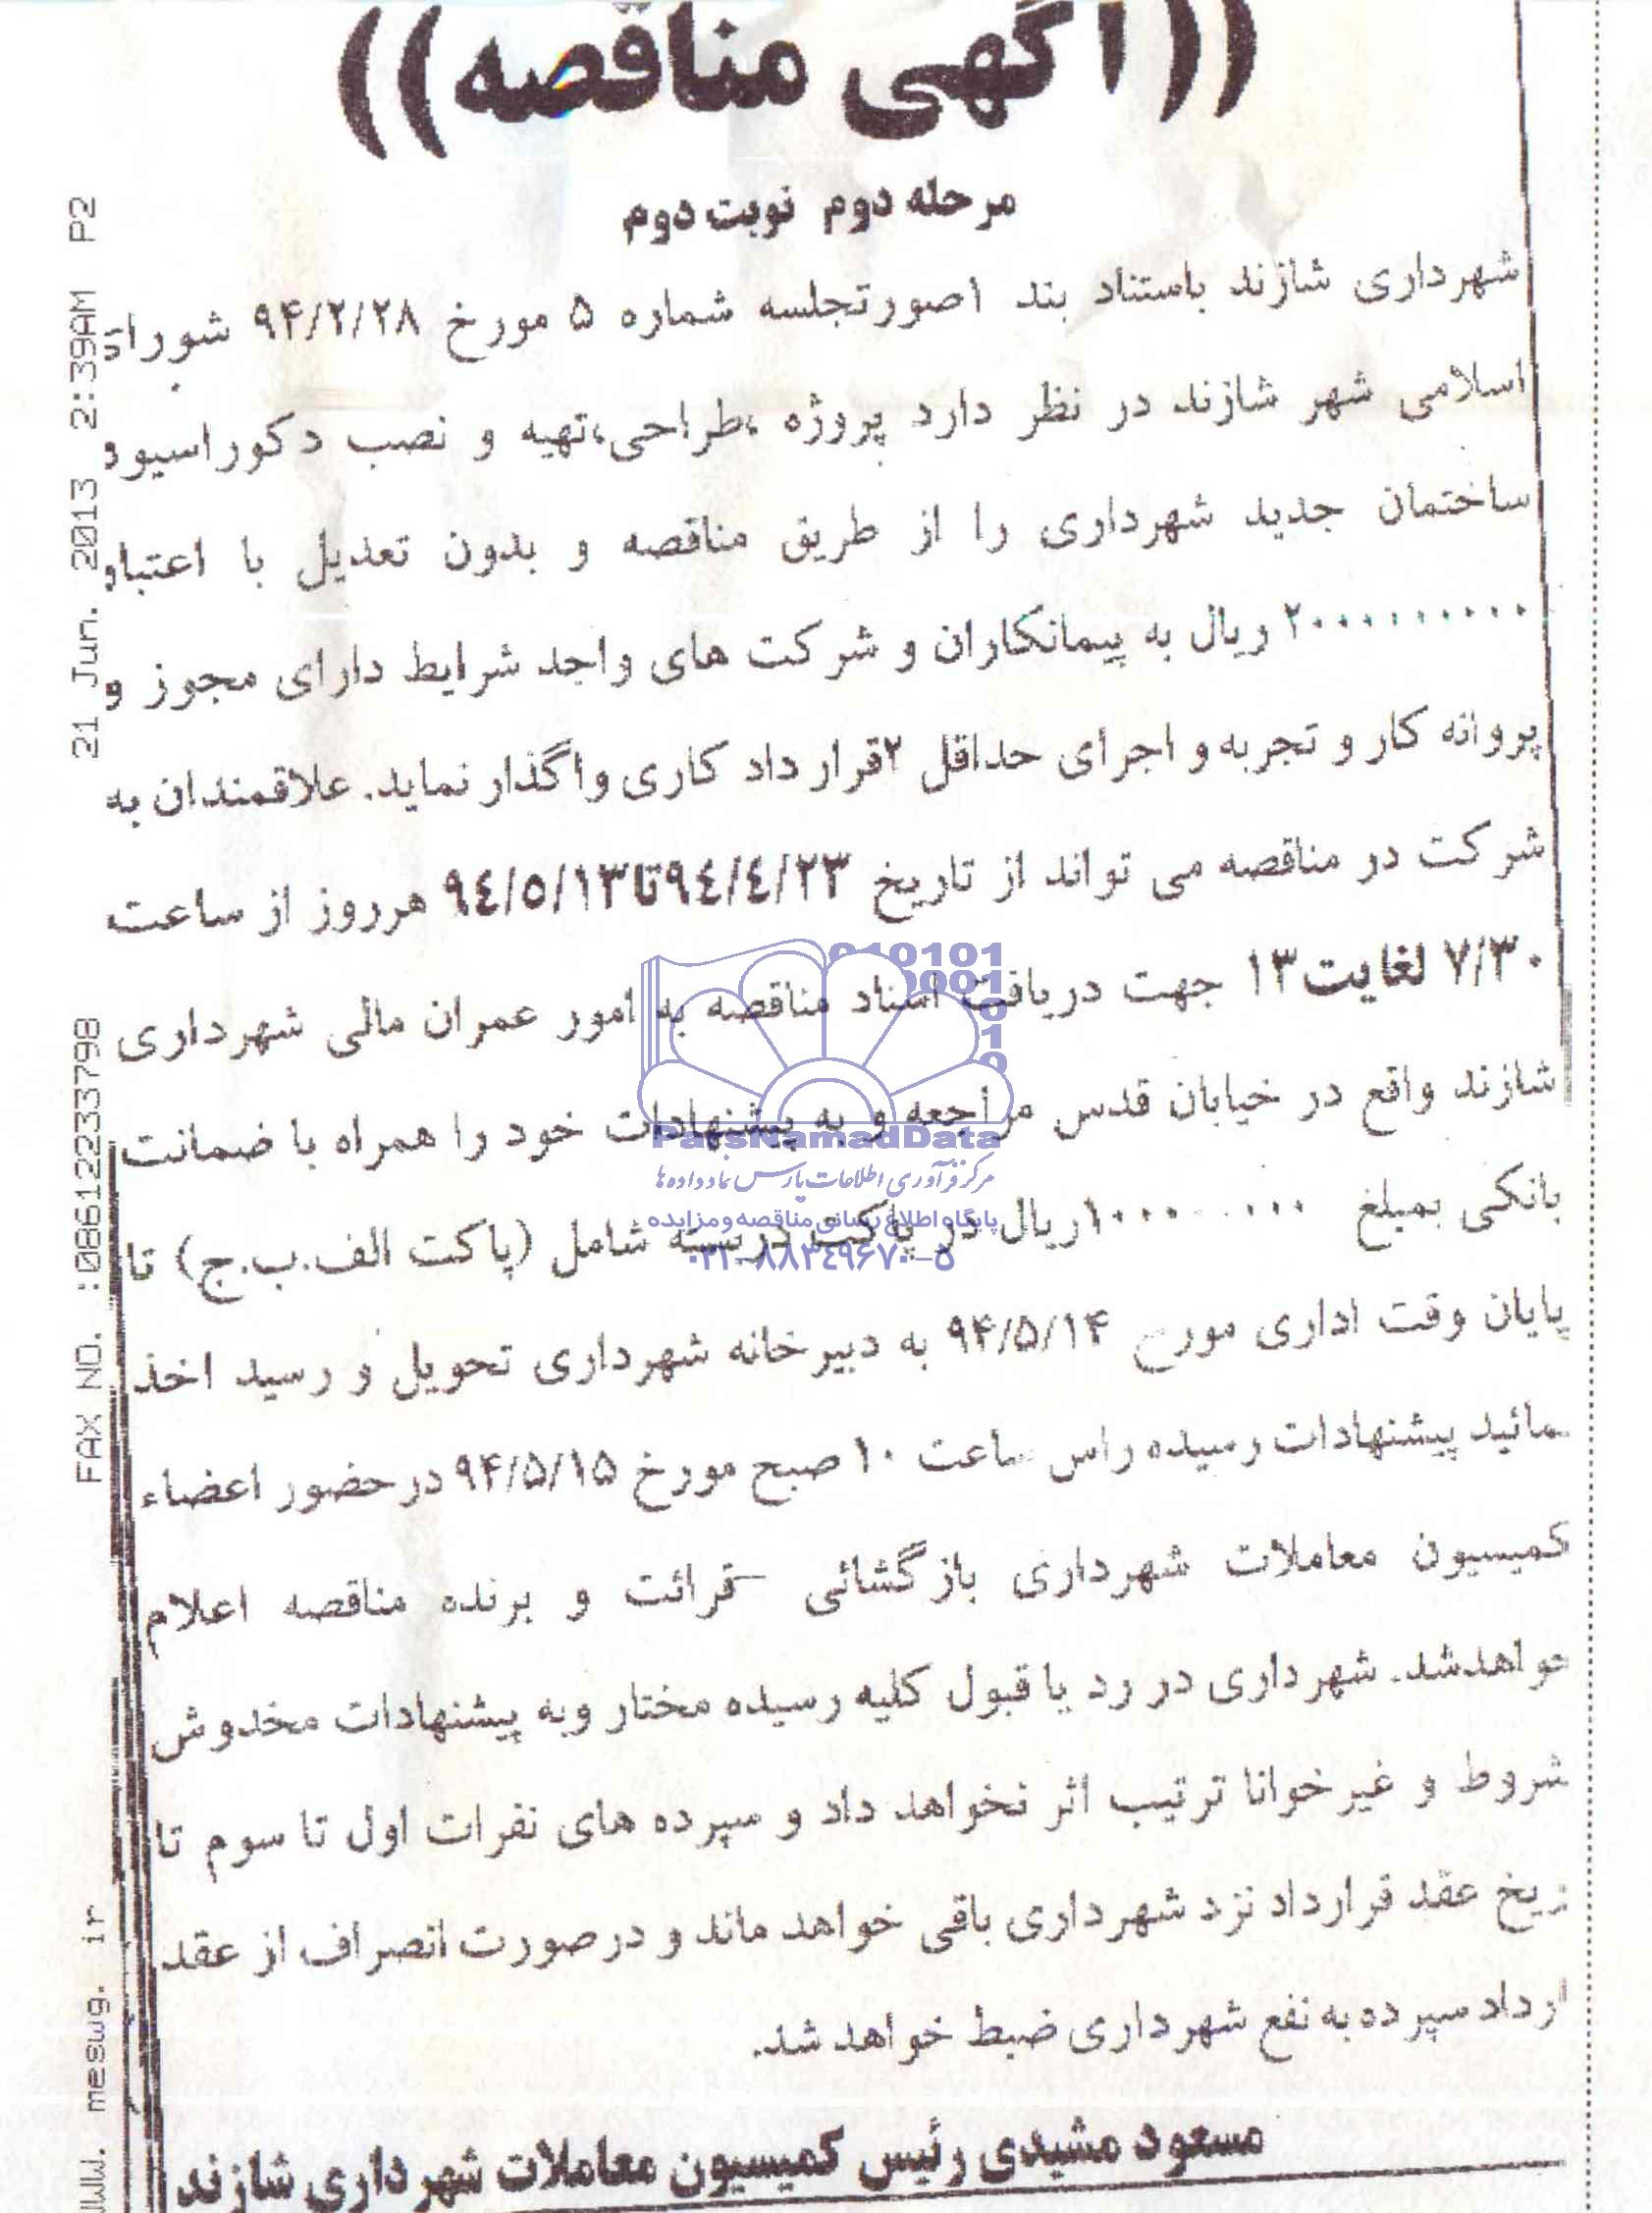 ((آگهی مناقصه))
مرحله دوم نوبت دوم
شهرداری شازند باستناد بند ۱صورتجلسه شماره ۵ مورخ ۹۴/۲/۲۸ شورای
اسلامی شهر شازند در نظر دارد پروژه ،طراحی،تهیه و نصب دکوراسیون
ساختمان جدید شهرداری را از طریق مناقصه و بدون تعدیل با اعتبار
۲۰۰۰۰۰۰۰۰۰ ریال به پیمانکاران و شرکت های واجد شرایط دارای مجوز و
پروانه کار و تجربه و اجرای حداقل ۲قرار داد کاری واگذار نماید. علاقمندان به
شرکت در مناقصه می تواند از تاریخ ۹٤/٤/۲۳تا۹٤/٥/۱۳ هرروز از ساعت
۷/۳۰ لغایت۱۳ جهت دریافت اسناد مناقصه به امور عمران مالی شهرداری
شازند واقع در خیابان قدس مراجعه و به پیشنهادات خود را همراه با ضمانت
بانکی بمبلغ ریال در پاکت دربسته شامل (پاکت الف.ب.ج) تا
پایان وقت اداری مورخ ۹۴/۵/۱۴ به دبیرخانه شهرداری تحویل و رسید اخذ
مائید پیشنهادات رسیده راس ساعت ۱۰ صبح مورخ ۹۴/۵/۱۵ درحضور اعضاء
کمیسیون معاملات شهرداری بازگشائی –قرائت و برنده مناقصه اعلام
خواهدشد. شهرداری در رد یا قبول کلیه رسیده مختار وبه پیشنهادات مخدوش
شروط و غیرخوانا ترتیب اثر نخواهد داد و سپرده های نفرات اول تا سوم تا
ریخ عقد قرارداد نزد شهرداری باقی خواهد ماند و درصورت انصراف از عقد
ارداد سپرده به نفع شهرداری ضبط خواهد شد.
مسعود مشیدی رئیس کمیسیون معاملات شهرداری شازند
21 Jun. 2013 2:39AM P2
FAX NO. :08612233798
WWW. meswg. ir
ParsNamadData
مرکز فرآوری اطلاعات پارس نماد داده ها
پایگاه اطلاع رسانی مناقصه و مزایده
۰۲۱-۸۸۳٤۹٦۷۰-۵